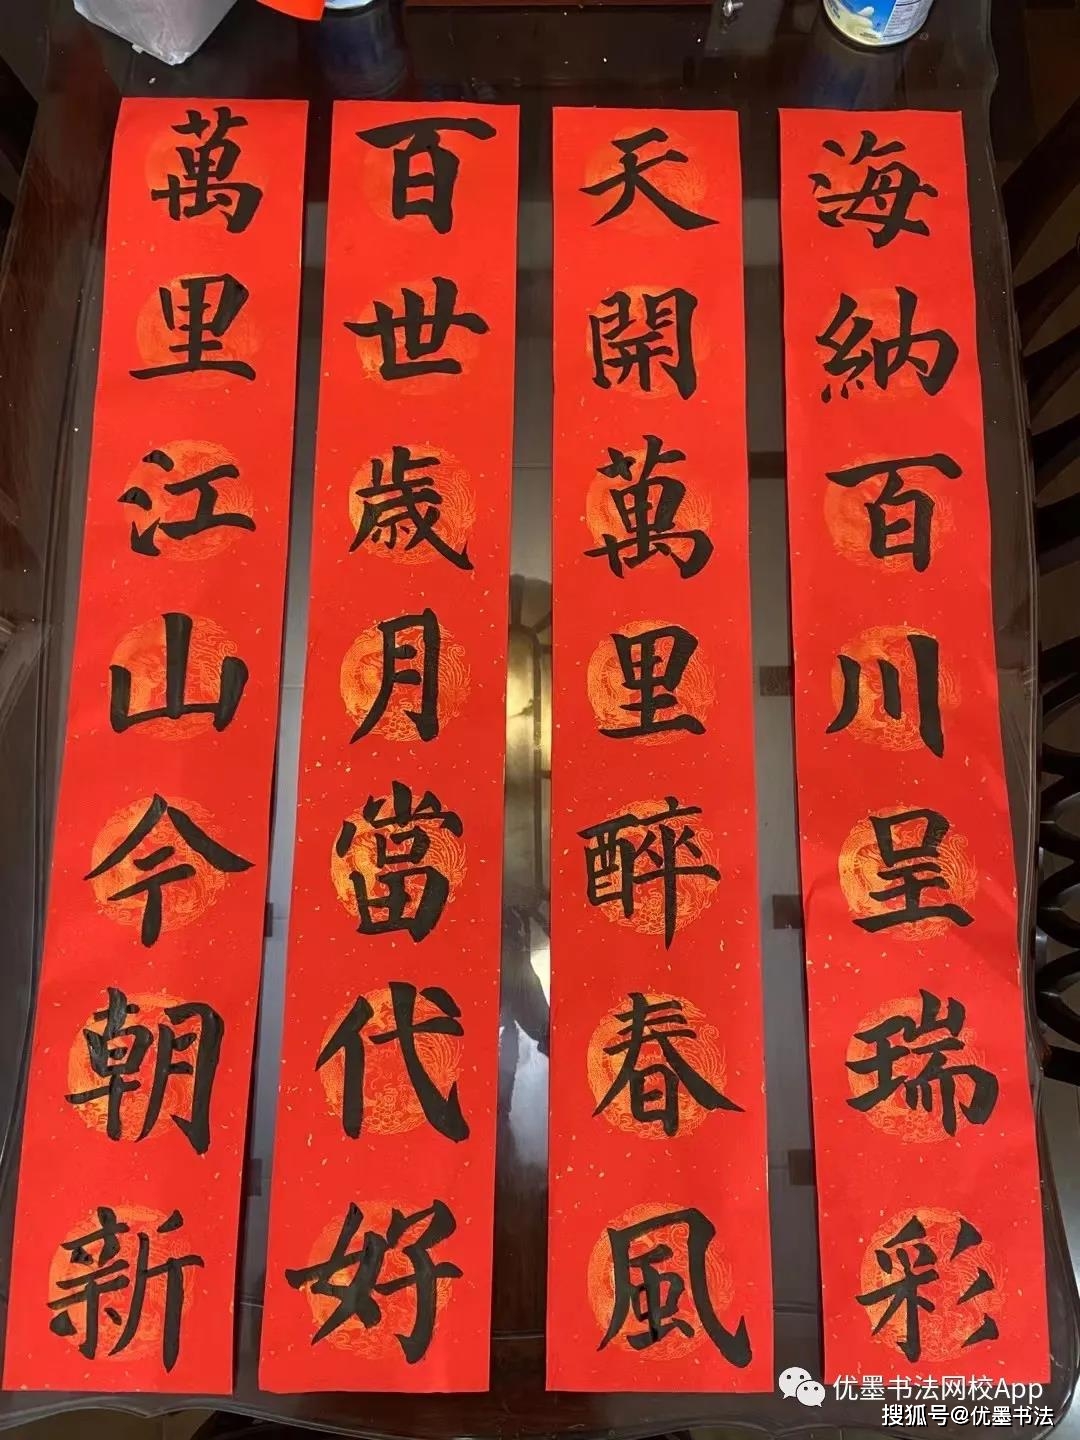 海納百川呈瑞彩
天開萬里醉春風
百世歲月當代好
萬里江山今朝新
优墨书法网校App
搜狐号@优墨书法